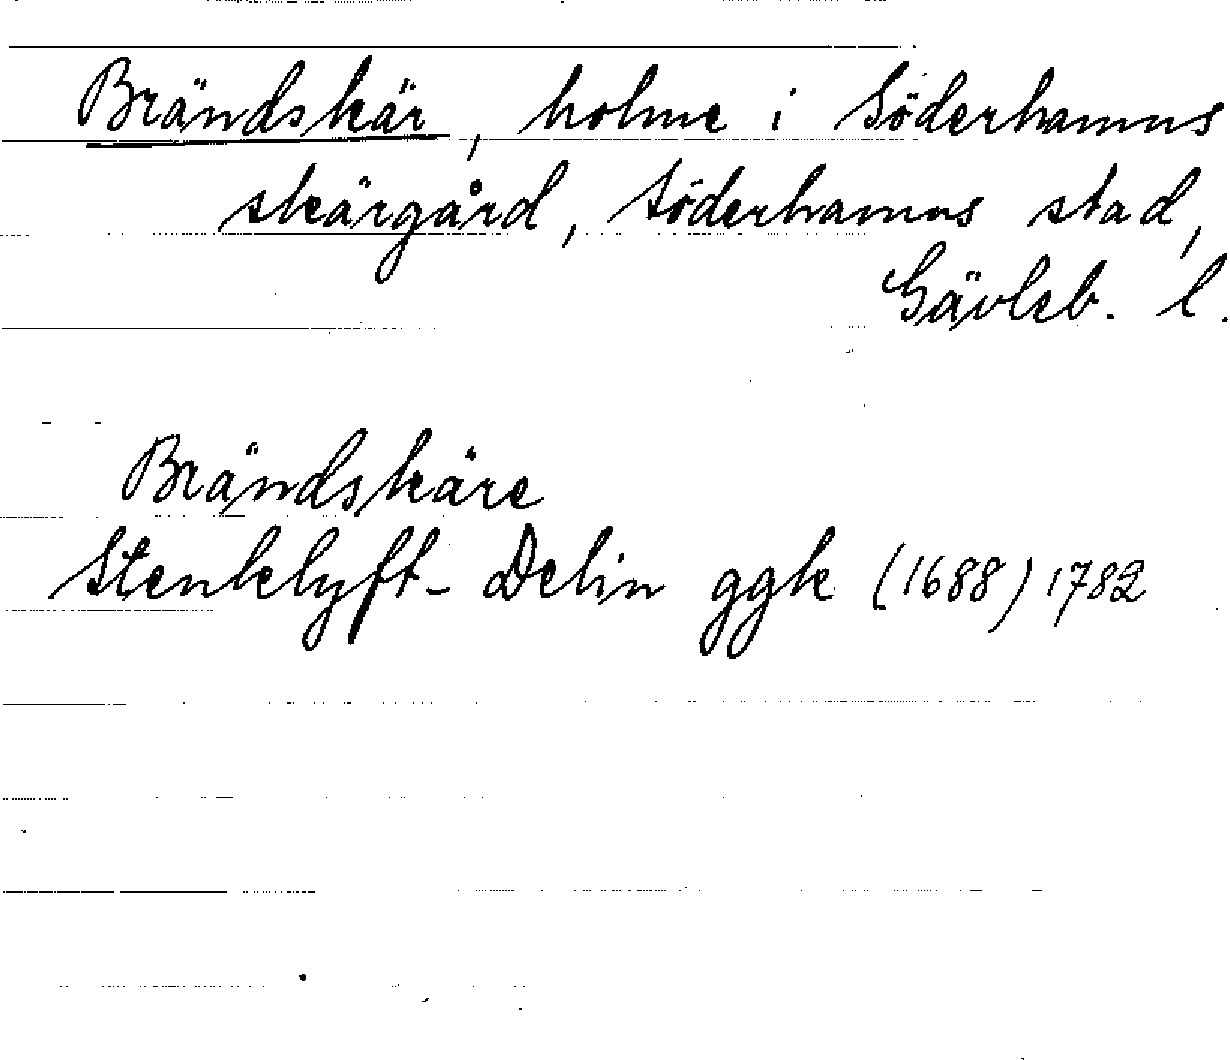 Brändskär, holme i Söderhamns
skärgård, Söderhamns stad,
Gävleb. l.
Brändskäre
Stenklyft-Delin ggk (1688) 1782